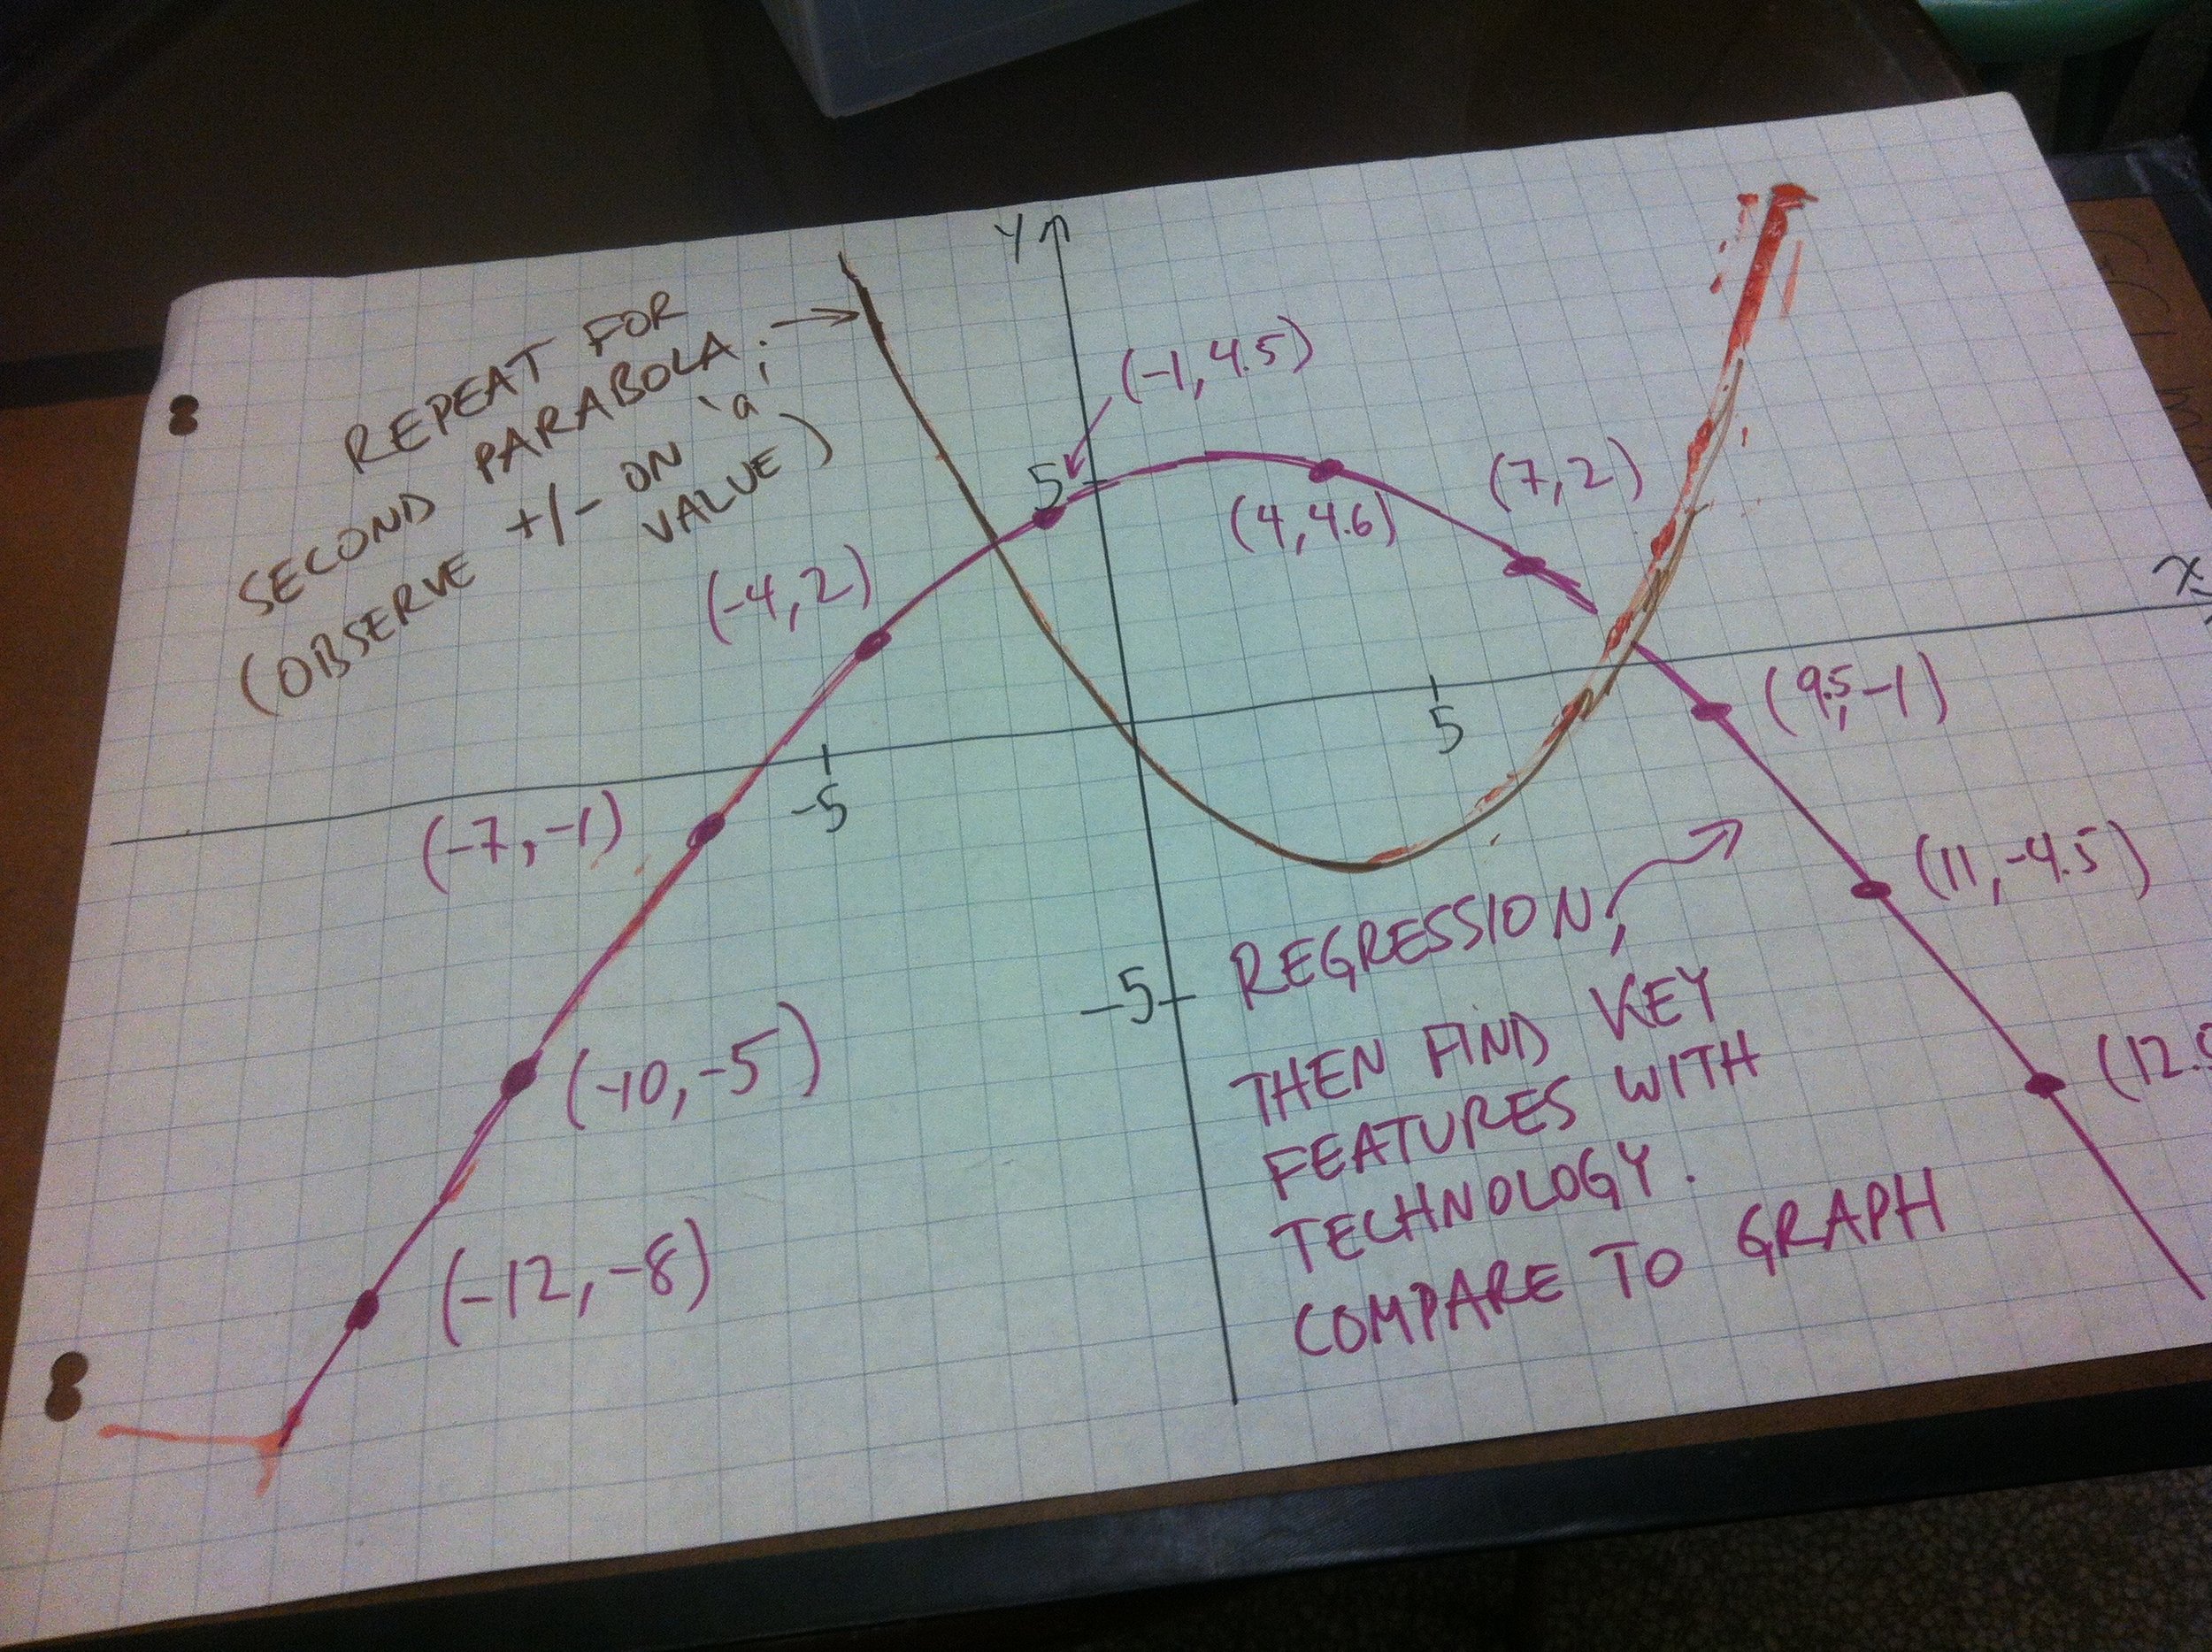 REPEAT FOR
SECOND PARABOLA;
(OBSERVE +/- ON 'a'
VALUE)
Y
(-1, 4.5)
5
(4, 4.6)
(7, 2)
x
(-4, 2)
(-7, -1)
-5
5
(9.5, -1)
(11, -4.5)
-5
(-10, -5)
(-12, -8)
REGRESSION,
THEN FIND KEY
FEATURES WITH
TECHNOLOGY.
COMPARE TO GRAPH